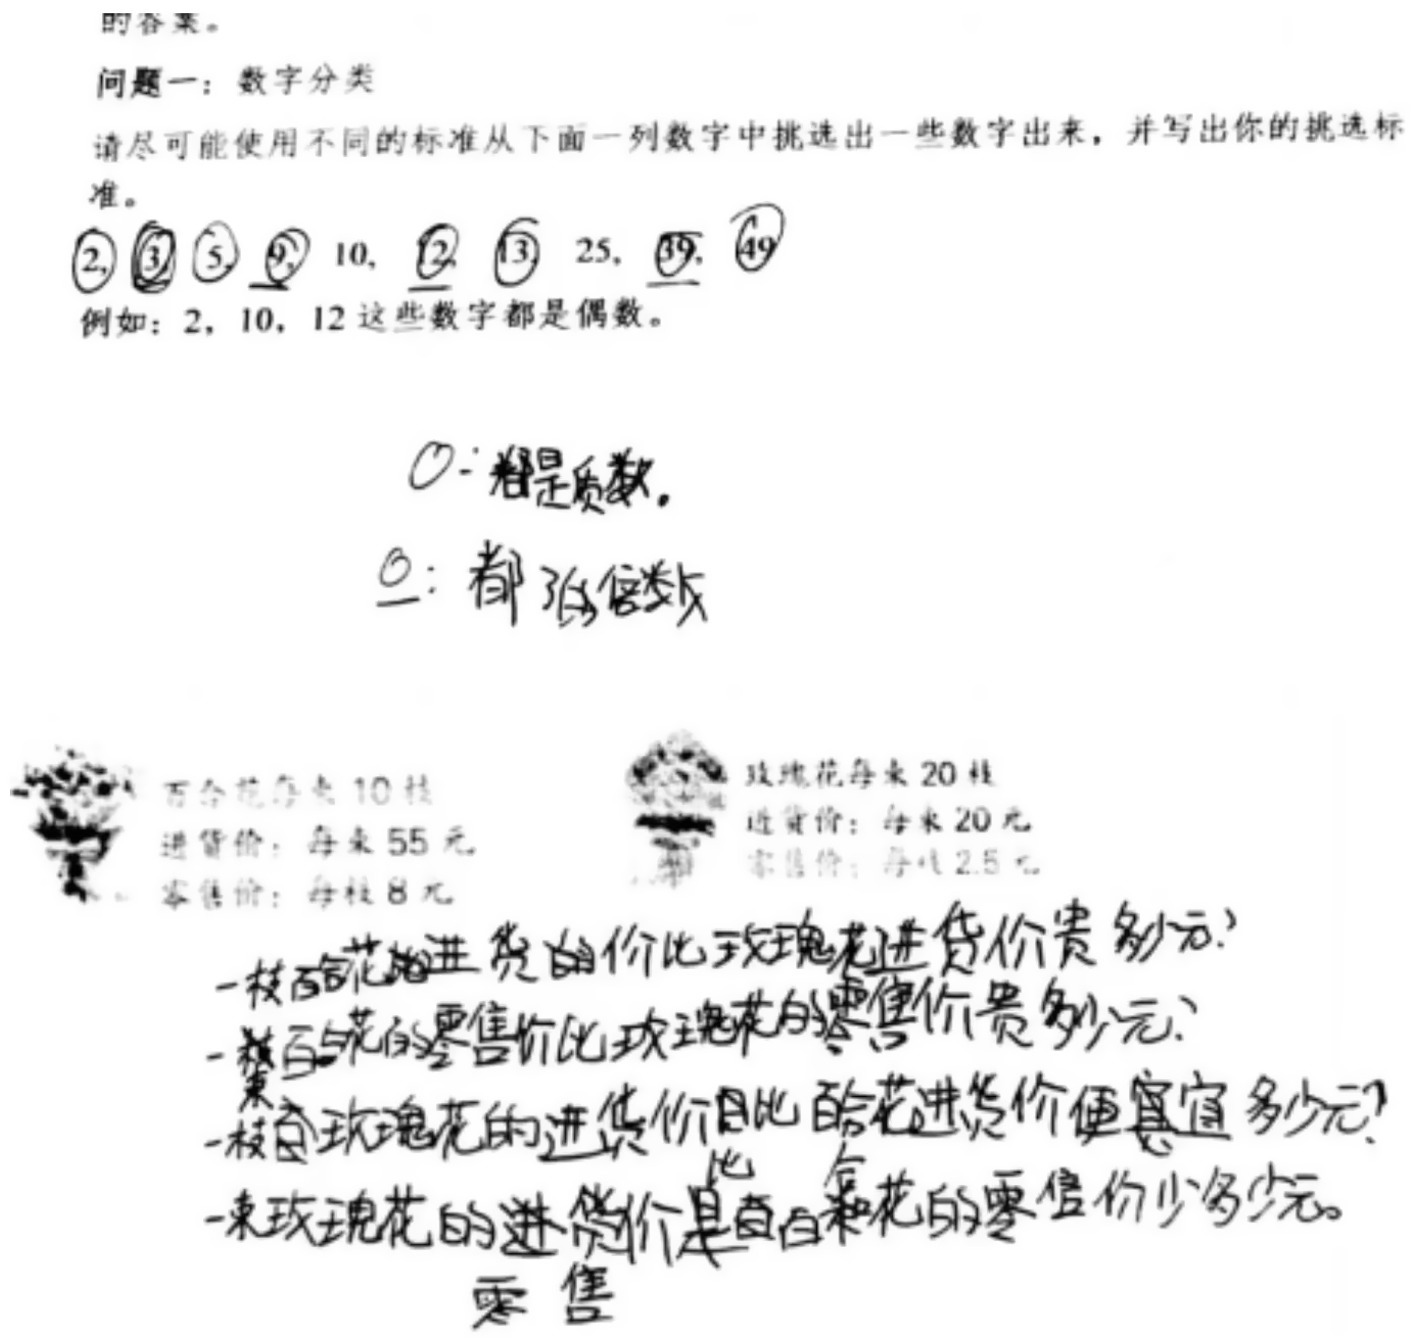 的答案。
问题一：数字分类
请尽可能使用不同的标准从下面一列数字中挑选出一些数字出来，并写出你的挑选标
准。
2, 3, 5, 9, 10, 12, 13, 25, 39, 49
例如：2，10，12 这些数字都是偶数。
○：都是质数。
○：都 3的倍数
百合花每束 10 枝
进货价：每束 55 元
零售价：每枝 8 元
玫瑰花每束 20 枝
进货价：每束 20 元
零售价：每枝 2.5 元
一枝百合花进货的价比玫瑰花进货价贵多少元？
一束百合花的零售价比玫瑰花的零售价贵多少元？
一枝玫瑰花的进货价比百合花进货价便宜多少元？
一束玫瑰花的零售价比百合花的零售价少多少元。